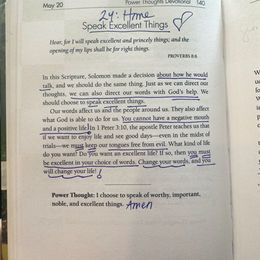 May 20
Power Thoughts Devotional 140
Home
Speak Excellent Things
Hear, for I will speak excellent and princely things; and the
opening of my lips shall be for right things.
PROVERBS 8:6
In this Scripture, Solomon made a decision about how he would
talk, and we should do the same thing. Just as we can direct our
thoughts, we can also direct our words with God's help. We
should choose to speak excellent things.
Our words affect us and the people around us. They also affect
what God is able to do for us. You cannot have a negative mouth
and a positive life. In 1 Peter 3:10, the apostle Peter teaches us that
if we want to enjoy life and see good days—even in the midst of
trials—we must keep our tongues free from evil. What kind of life
do you want? Do you want an excellent life? If so, then you must
be excellent in your choice of words. Change your words, and you
will change your life!
Power Thought: I choose to speak of worthy, important,
noble, and excellent things. Amen